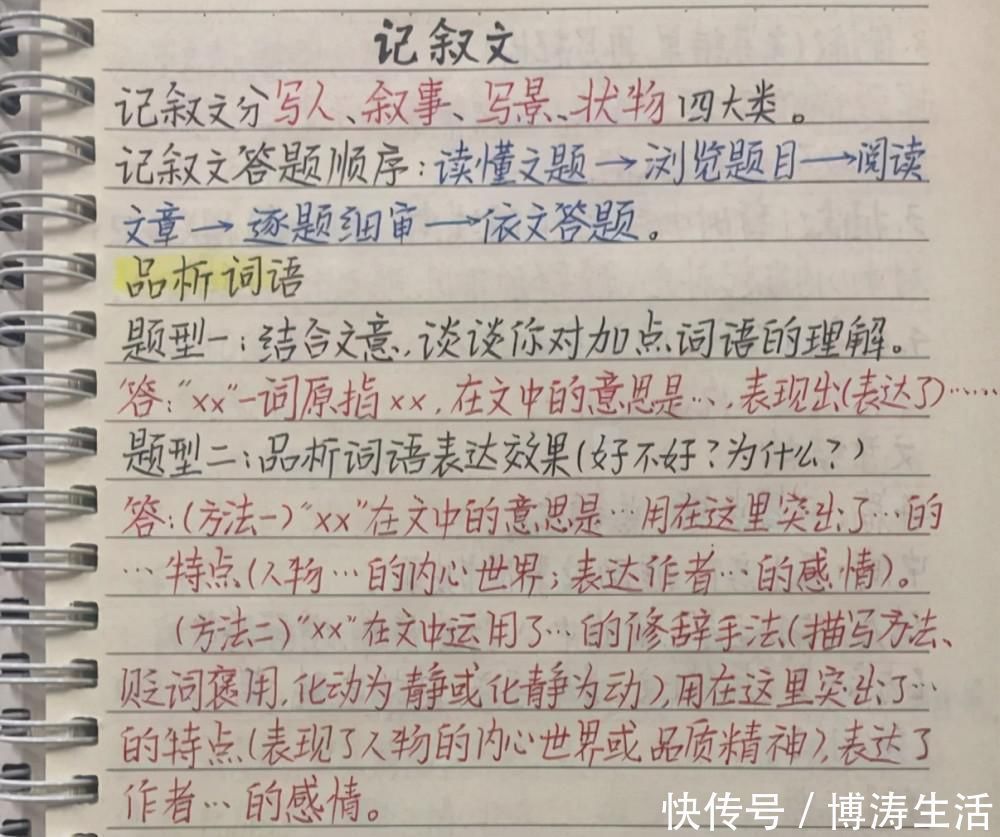 记叙文
记叙文分写人、叙事、写景、状物四大类。
记叙文答题顺序:读懂文题→浏览题目→阅读
文章→逐题细审→依文答题。
品析词语
题型一:结合文意,谈谈你对加点词语的理解。
答:"××"一词原指××,在文中的意思是…,表现出(表达了)……
题型二:品析词语表达效果(好不好?为什么?)
答:(方法一)"××"在文中的意思是…用在这里突出了…的
…特点(人物…的内心世界;表达作者…的感情)。
(方法二)"××"在文中运用了…的修辞手法(描写方法、
贬词褒用,化动为静或化静为动),用在这里突出了…
的特点(表现了人物的内心世界或品质精神),表达了
作者…的感情。
快传号 / 博涛生活